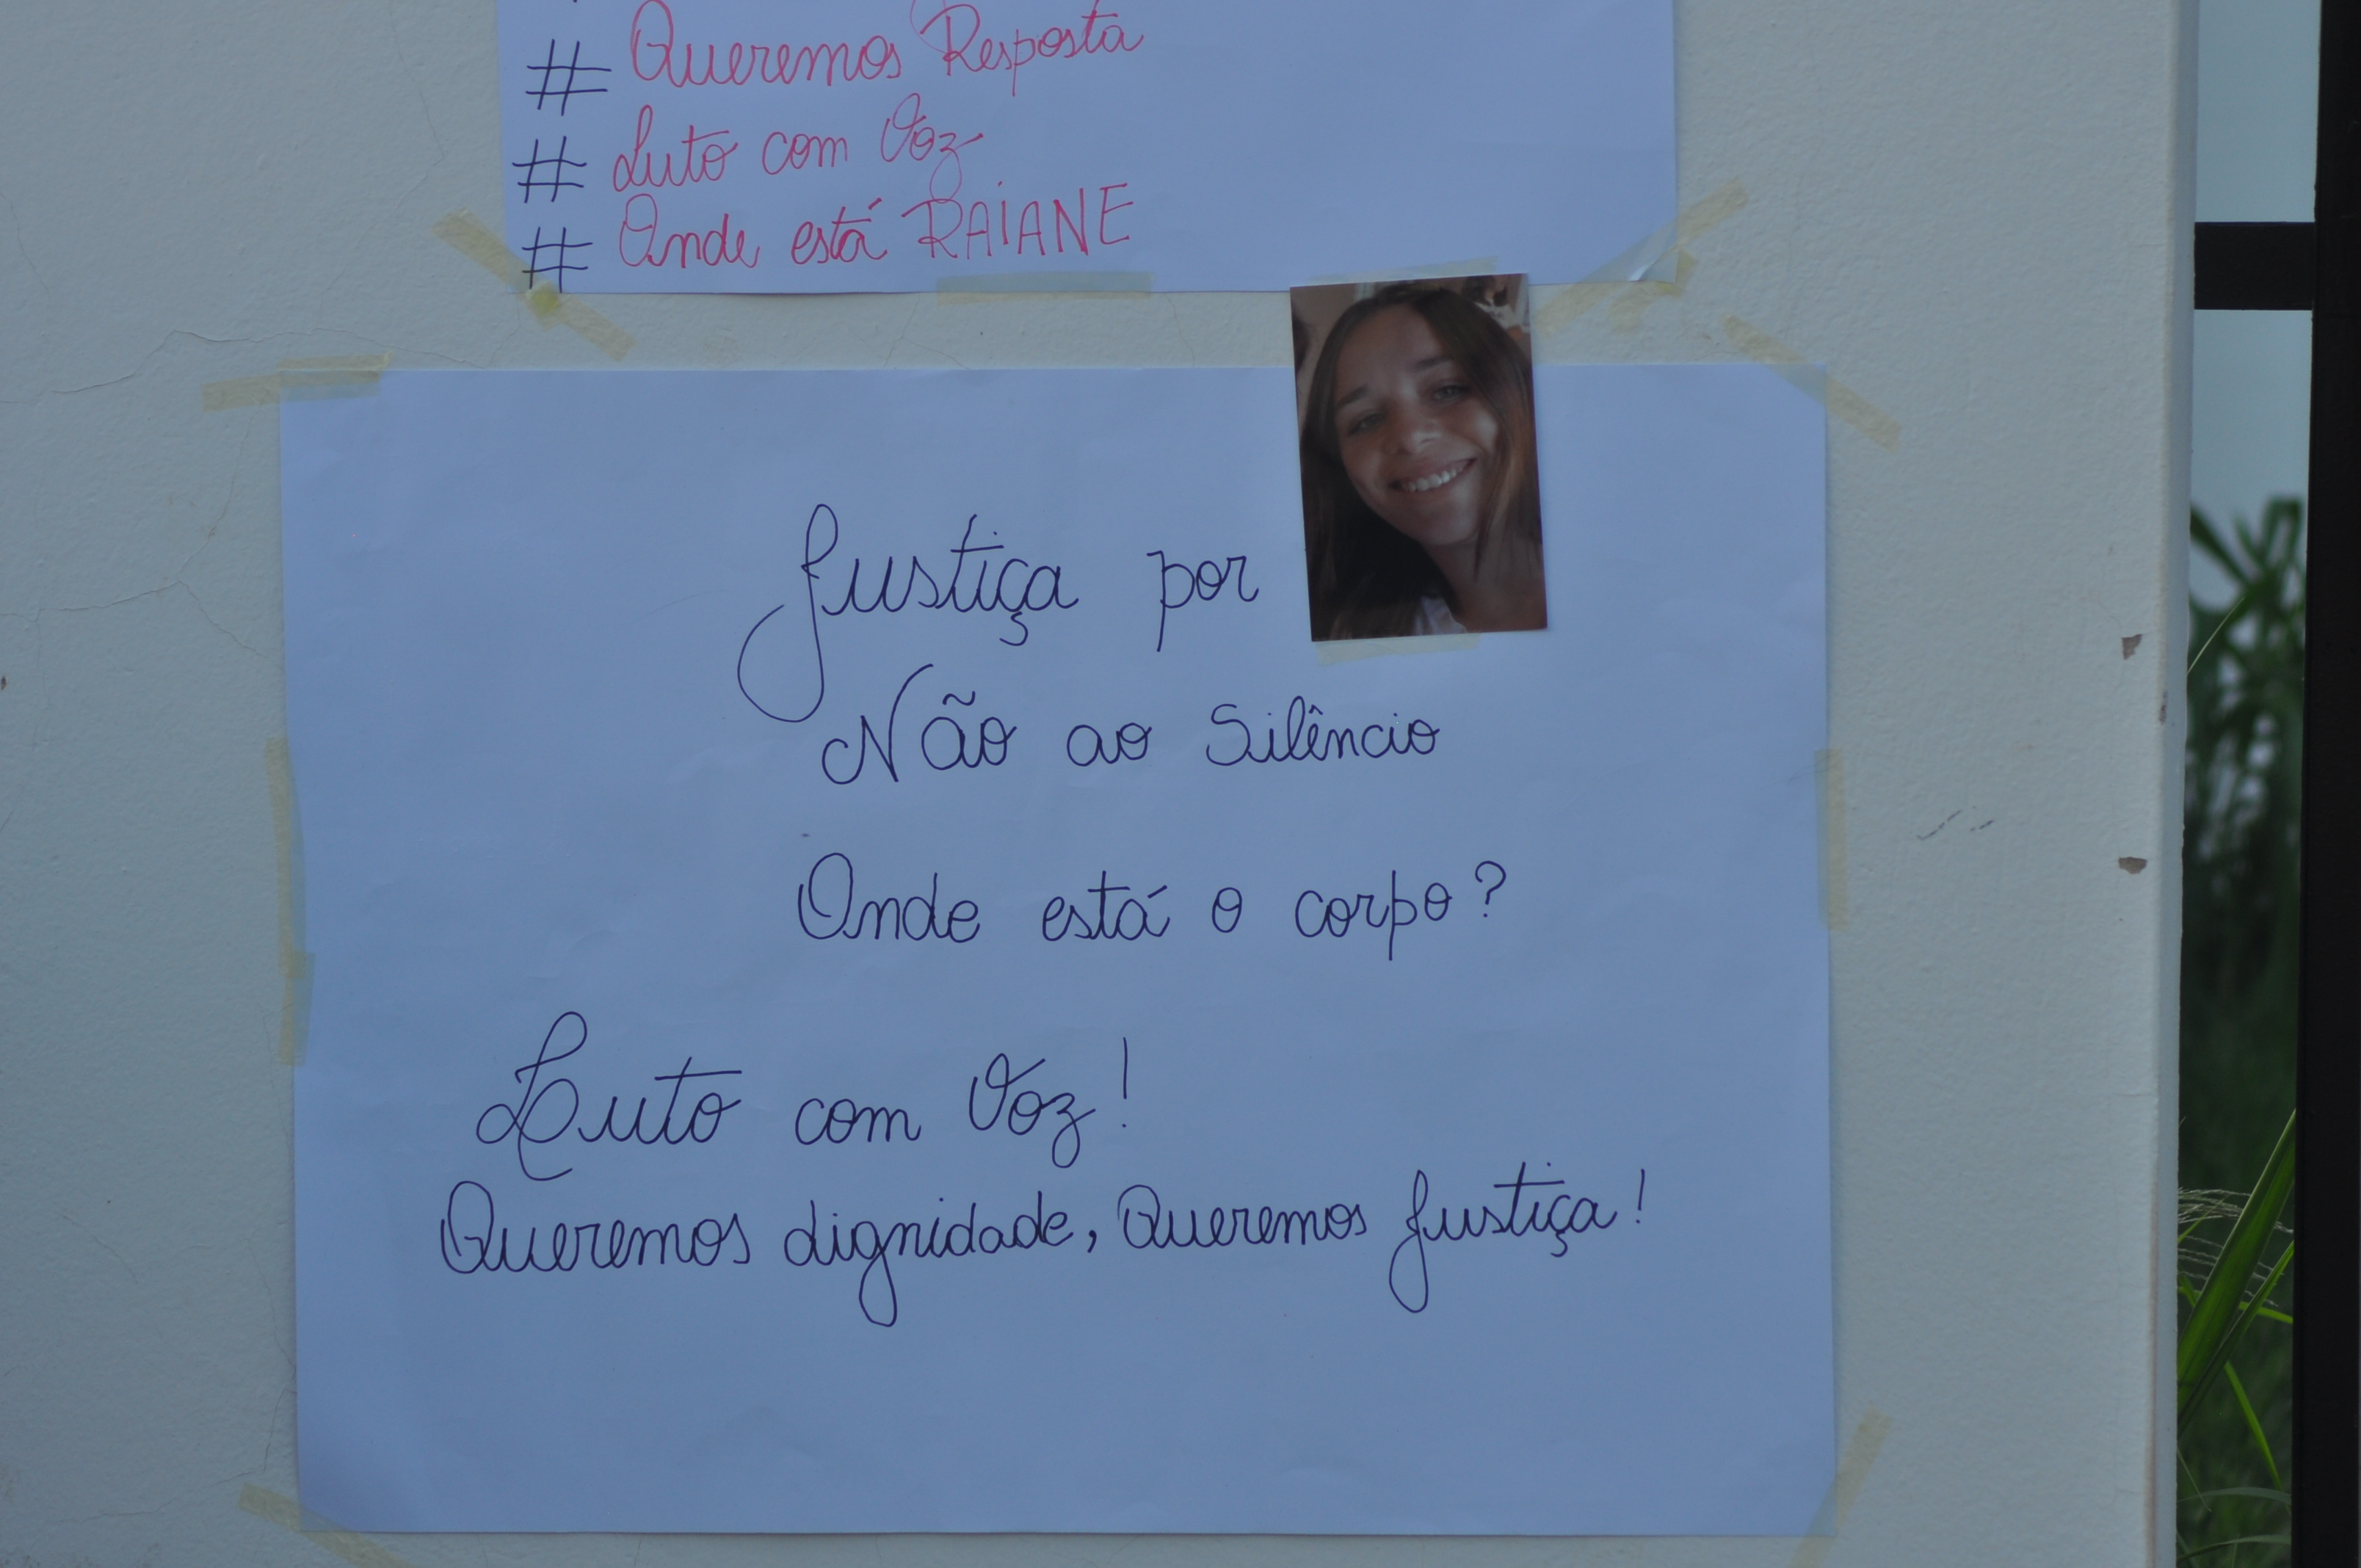 # Queremos Resposta
# Luto com Voz
# Onde está RAIANE
Justiça por
Não ao Silêncio
Onde está o corpo?
Luto com Voz!
Queremos dignidade, Queremos Justiça!